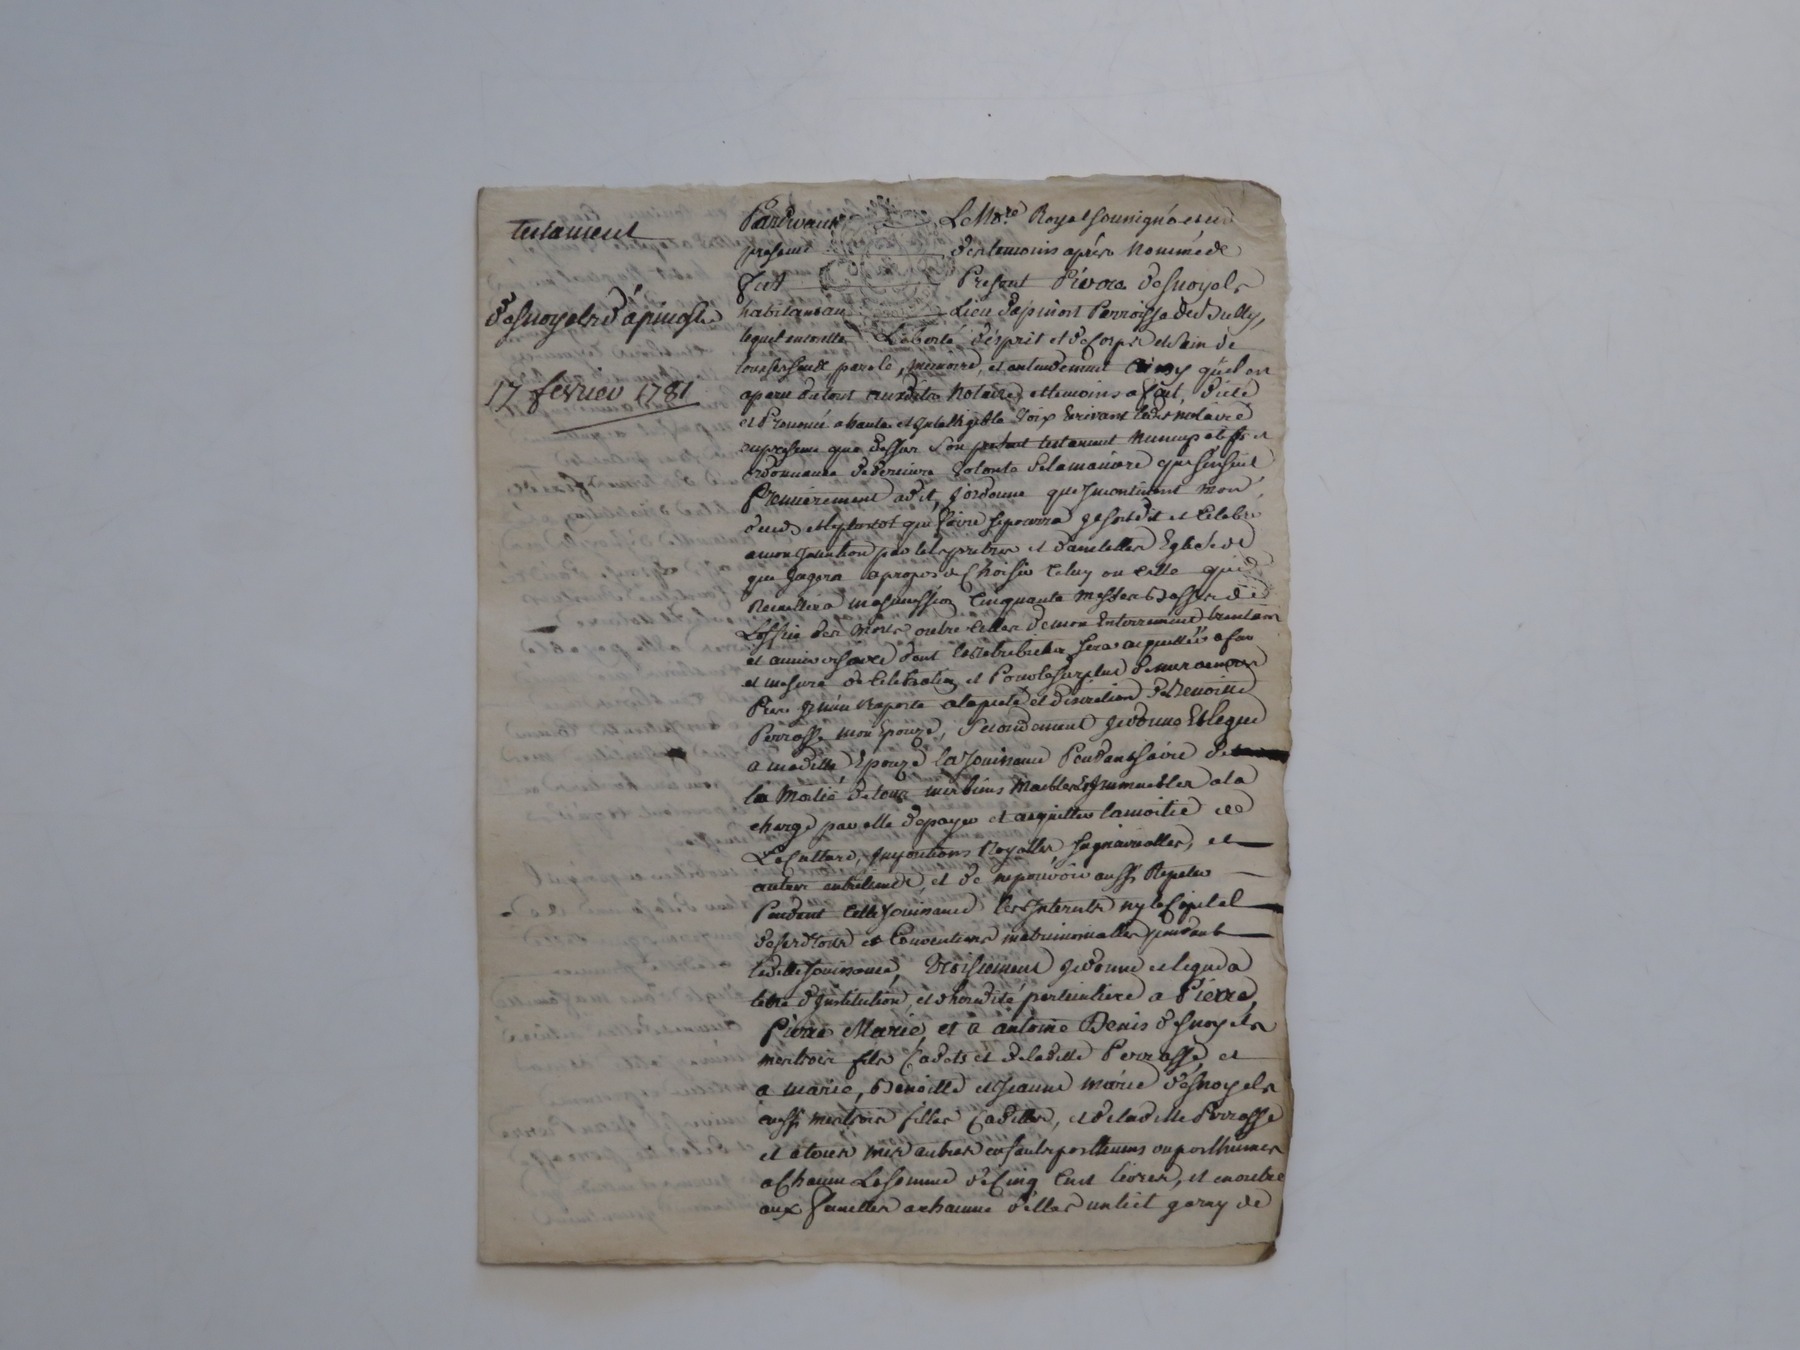 testament
desnoyels d'apingt
17 fevrier 1781
Pardevant Le No.re Royal soussigné et en
presence des temoins après nommés de
fut Present Pierre desnoyels
habitant au Lieu d'apinost Perroisse de Sully,
lequel en cette Liberté d'esprit et de Corps et sain de
tous ses sens, parole, memoire, et entendement ainsy qu'il en
aparu du tout auxdits Notaire et temoins a fait, dicté
et Prononcé a haute et Intelligible Voix Ecrivant ledit notaire
en presence que dessus son present testament Nuncupatif et
ordonnance de derniere Volonté de la maniere que s'ensuit
Premierement a dit, J'ordonne que Incontinent mon
deceds et plustot que faire se pourra Il soit dit et Celebré
a mon Intention par tels pretres et dans telles Eglises
que Jugera a propos de Choisir Celuy ou Celle qui
Recueillera ma succession Cinquante Messes basses de
L'office des Morts outre Celles de mon Enterrement trentain
et anniversaire dont la retribution sera acquittée a fur
et mesure de Celebration et Pour le surplus de mes œuvres
Pies Je m'en raporte a la pieté et discretion de Benoitte
Perrasse mon Epouze, Secondement Je donne Et legue
a madite Epouze la Jouissance Pendant sa vie de
la Moitié de tous mes biens Meubles et Immeubles a la
charge par elle de payer et acquitter la moitié de
La Culture, Impositions Royalles, Seigneurialles, et
autres entretiens, et de ne pouvoir aussi Repeter
Pendant cette Jouissance les Interests ny le Capital
de ses droits et Conventions matrimonialles pendant
ladite Jouissance, Troisiemement Je donne et legue a
titre d'Institution, et d'heredité particuliere a Pierre,
Pierre Marie, et à antoine Denis desnoyels
mes trois fils Cadets et de ladite Perrasse, et
a marie, Benoitte et Jeanne marie desnoyels
aussi mes trois filles Cadettes, et de ladite Perrasse
et a tous mes autres enfants posthumes ou posthumes
a Chacun La Somme de Cinq Cent livres, et en outre
aux femelles a chacune d'elles un lict garny de